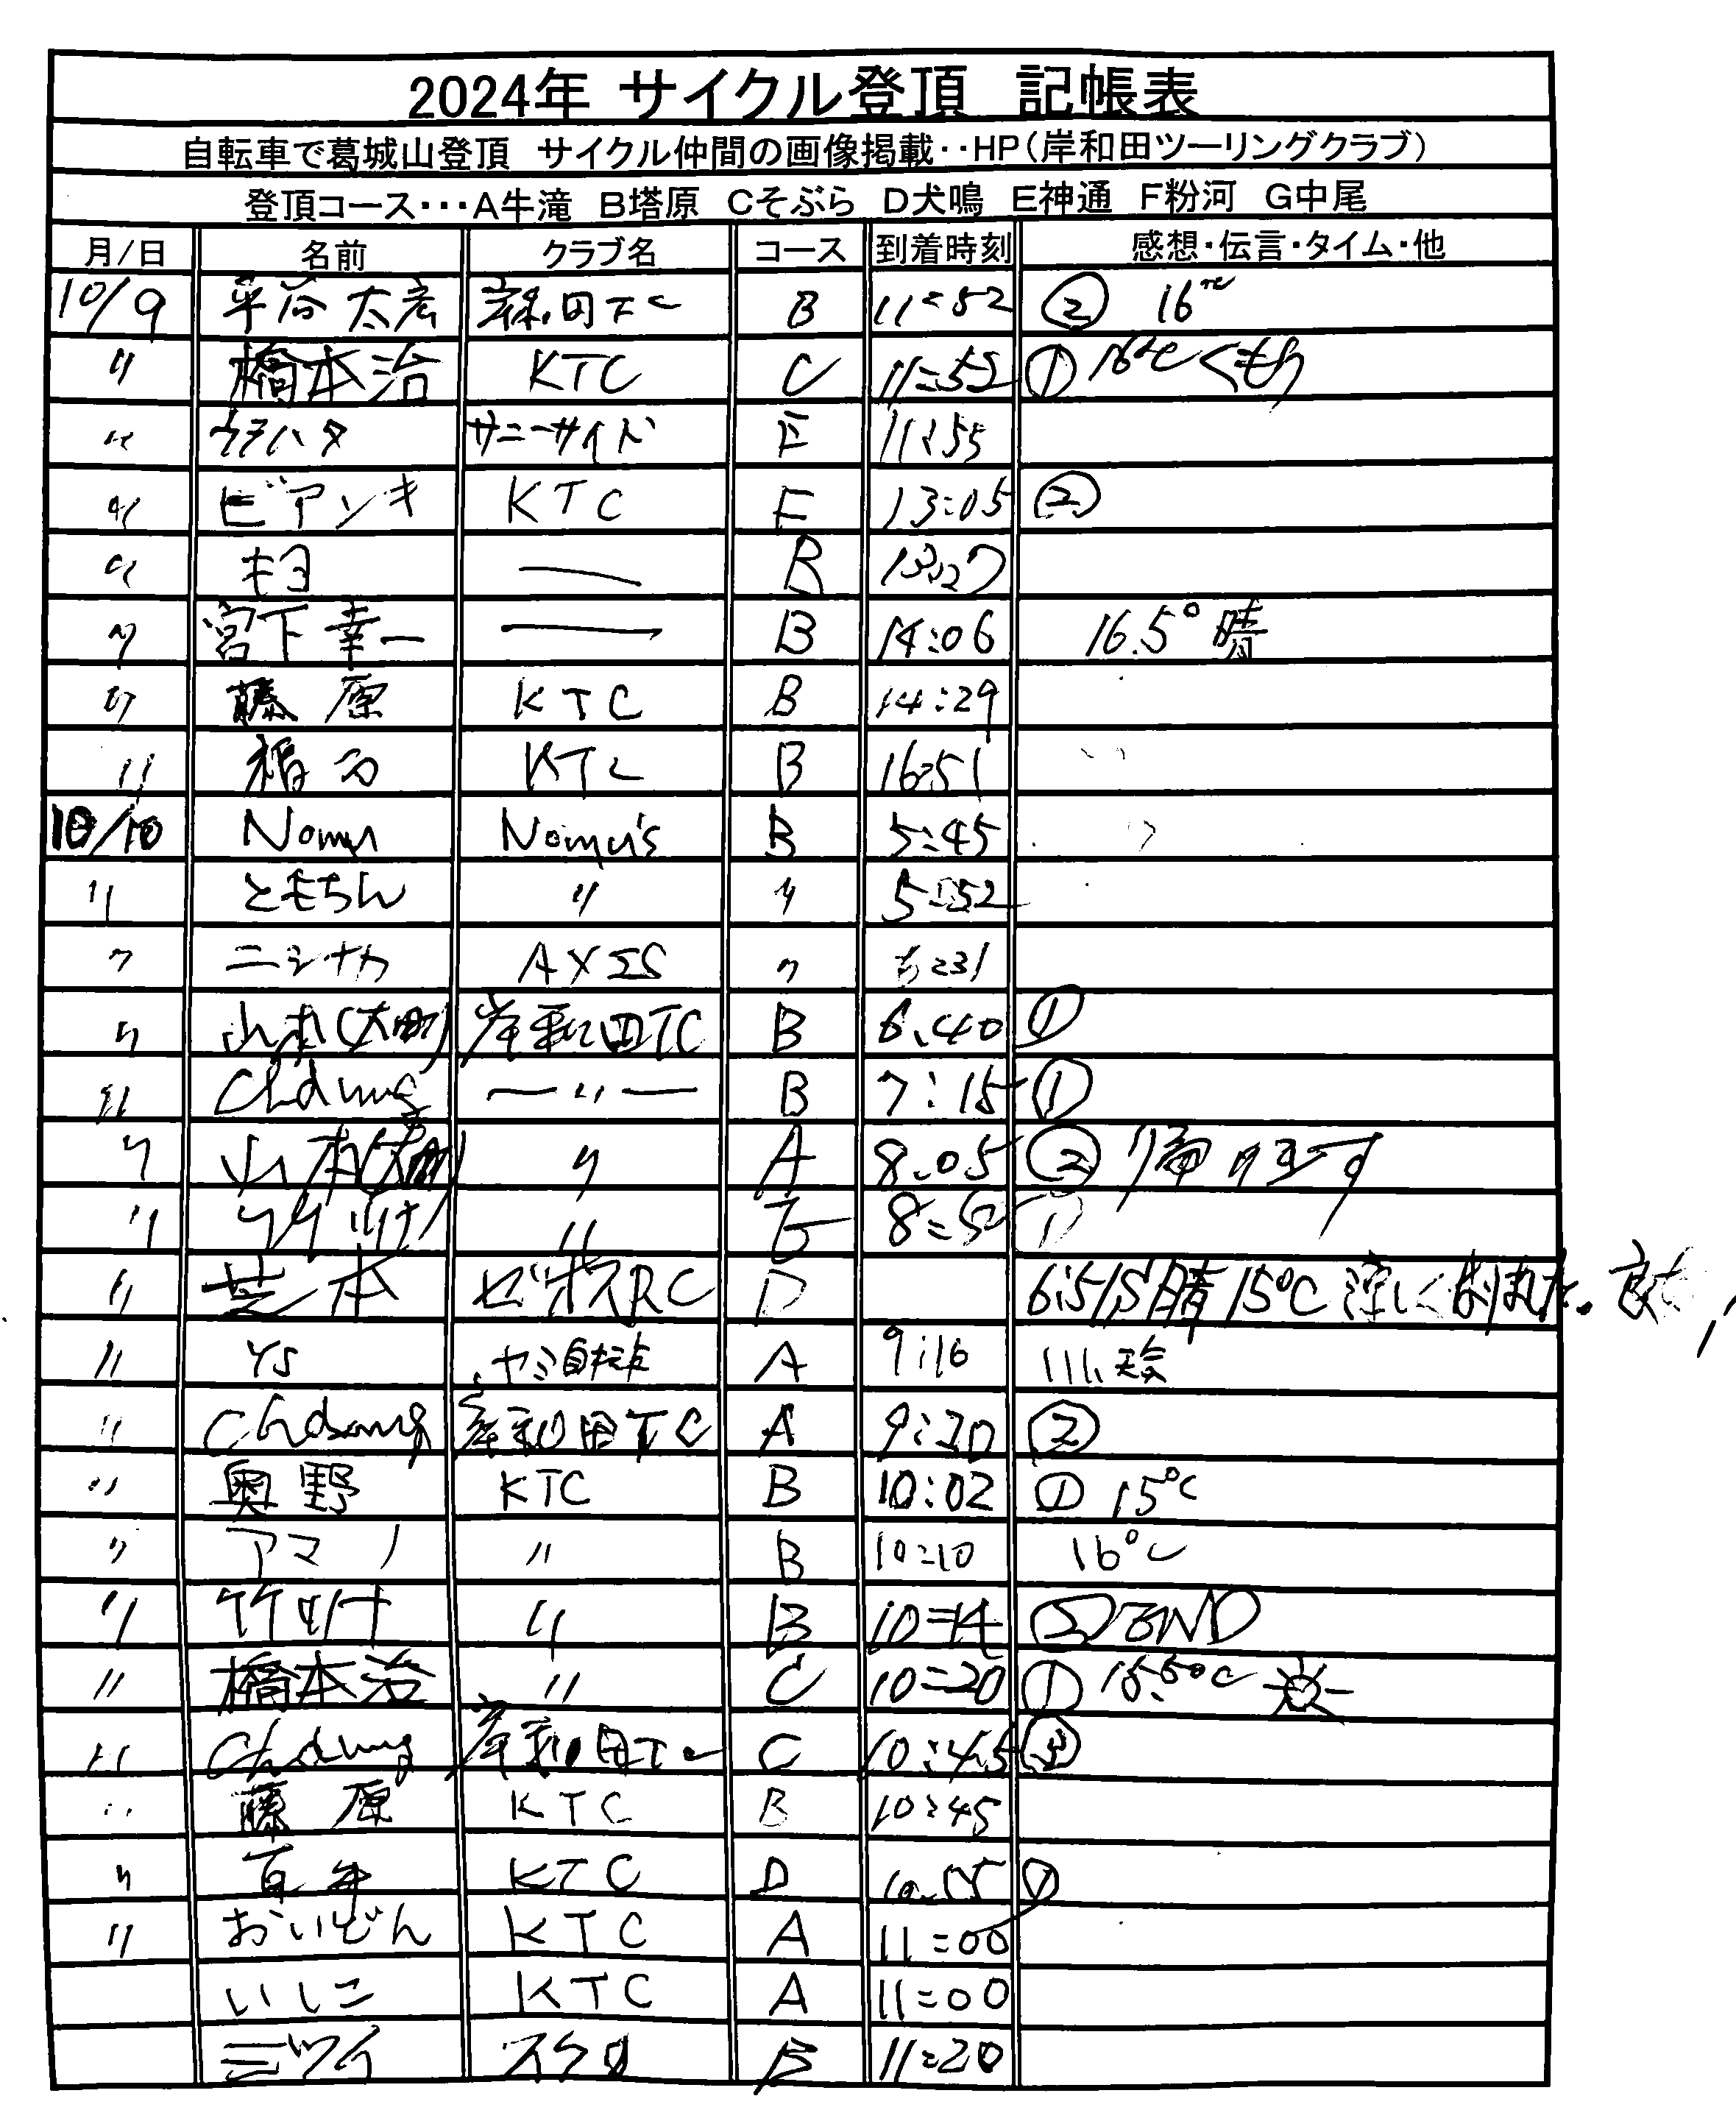 2024年 サイクル登頂 記帳表
自転車で葛城山登頂 サイクル仲間の画像掲載‥HP(岸和田ツーリングクラブ)
登頂コース・・・A牛滝 B塔原 Cそぶら D犬鳴 E神通 F粉河 G中尾
月/日 名前 クラブ名 コース 到着時刻 感想・伝言・タイム・他
10/9 平谷 太宏 岸和田TC B 11:52 ② 16℃
〃 橋本治 KTC C 11:52 ① 16℃ くもり
〃 サニーサイド E 11:55
〃 ビアンキ KTC F 13:05 ②
〃 キヨ — B 13:27
〃 宮下幸一 — B 14:06 16.5° 晴
〃 藤原 KTC B 14:29
〃 KTC B 16:51
10/10 Nomu Nomu's B 5:45
〃 ともちん 〃 〃 5:52
〃 ニシナカ AXIS 〃
〃 山本(大町) 岸和田TC B 6:40 ①
〃 Chdung —〃— B 7:15 ①
〃 山本(大町) 〃 A 8:05 ② 帰ります
〃 〃 8:50 ①
〃 芝本 ビボスRC D 晴 15℃ 涼しくなりました。
〃 YS ヤミ自転車 A 9:16
〃 Chdang 岸和田TC A 9:30 ②
〃 奥野 KTC B 10:02 ① 15℃
〃 アマノ 〃 B 10:10 16℃
〃 〃 B 10:14 ② END
〃 橋本治 〃 C 10:20 ① 15.5℃
〃 Chdung 岸和田TC C 10:45 ③
〃 藤原 KTC B 10:45
〃 KTC D ①
〃 おいどん KTC A 11:00
いしこ KTC A 11:00
ミツイ スクロ B 11:20